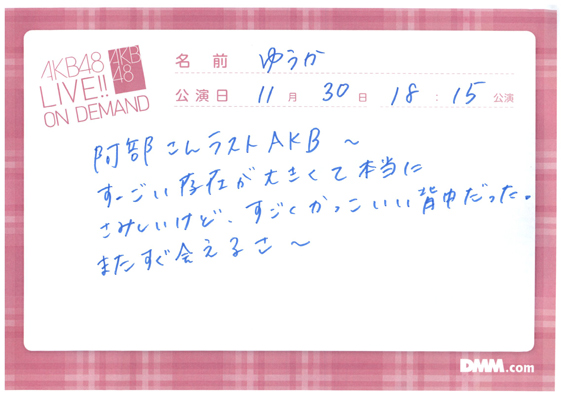 AKB48
LIVE!!
ON DEMAND
AKB
48
名前 ゆうか
公演日 11月 30日 18:15公演
阿部さんラストAKB〜
すーごい存在が大きくて本当に
さみしいけど、すごくかっこいい背中だった。
またすぐ会えるさ〜
DMM.com